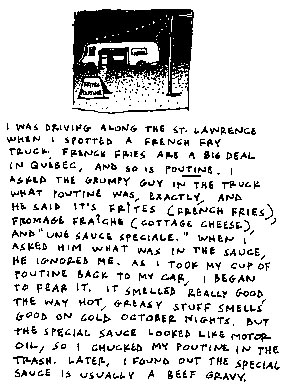 FRITES
POUTINE
I WAS DRIVING ALONG THE ST. LAWRENCE
WHEN I SPOTTED A FRENCH FRY
TRUCK. FRENCH FRIES ARE A BIG DEAL
IN QUEBEC, AND SO IS POUTINE. I
ASKED THE GRUMPY GUY IN THE TRUCK
WHAT POUTINE WAS, EXACTLY, AND
HE SAID IT'S FRITES (FRENCH FRIES),
FROMAGE FRAICHE (COTTAGE CHEESE),
AND "UNE SAUCE SPECIALE." WHEN I
ASKED HIM WHAT WAS IN THE SAUCE,
HE IGNORED ME. AS I TOOK MY CUP OF
POUTINE BACK TO MY CAR, I BEGAN
TO FEAR IT. IT SMELLED REALLY GOOD
THE WAY HOT, GREASY STUFF SMELLS
GOOD ON COLD OCTOBER NIGHTS. BUT
THE SPECIAL SAUCE LOOKED LIKE MOTOR
OIL, SO I CHUCKED MY POUTINE IN THE
TRASH. LATER, I FOUND OUT THE SPECIAL
SAUCE IS USUALLY A BEEF GRAVY.